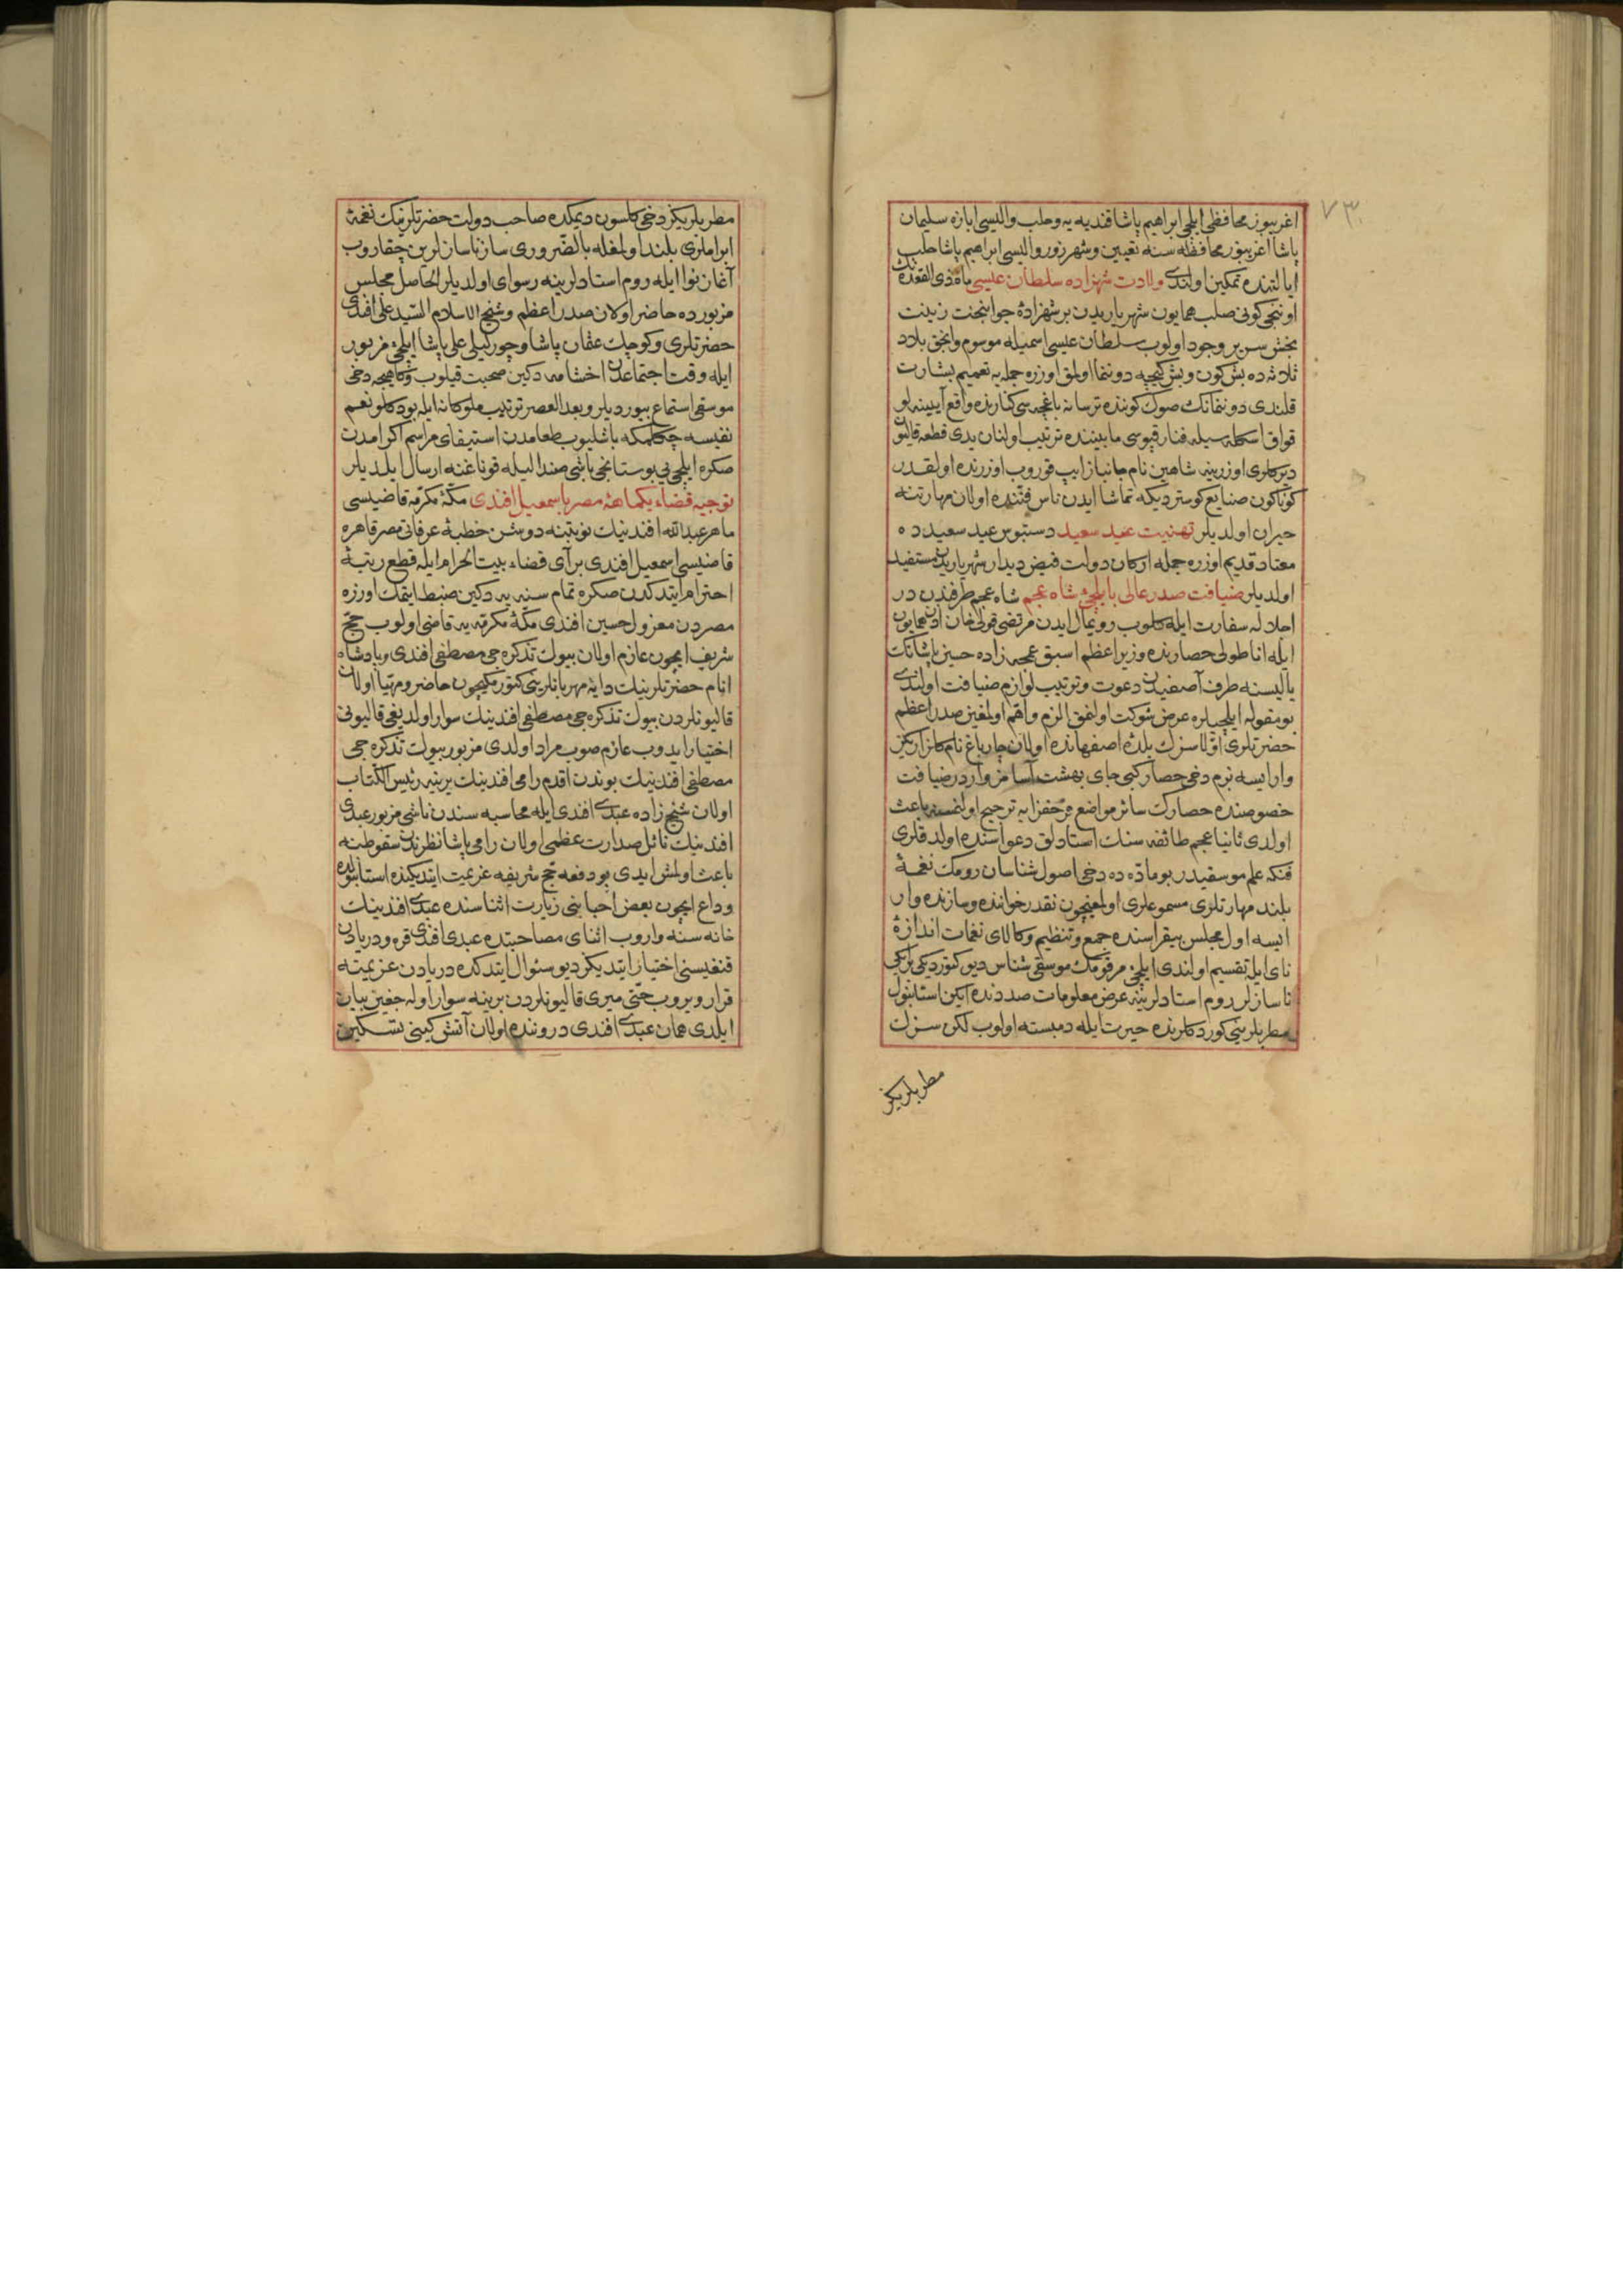 ٧٣
اغریبوز محافظی ایلچی ابراهیم پاشا قندیه یه و حلب والیسی ابازه سلیمان
پاشا اغریبوز محافظه سنه تعیین و شهرزور والیسی ابراهیم پاشا حلب
ایالتنده تمکین اولندی ولادت شهزاده سلطان عیسی ماه ذی القعده نك
اوننجی کونی صلب همایون شهریاریدن بر شهزادۀ جوانبخت زینت
بخش سریر وجود اولوب سلطان عیسی اسمیله موسوم وانجق بلاد
ثلاثه ده بش کون و بش کیجه دوننما اولمق اوزره جمله یه تعمیم بشارت
قلندی دوننمانك صوك کوننده ترسانه باغچه سی کنارنده واقع آیینه لو
قواق اسکله سیله فنار قپوسی مابیننده ترتیب اولنان یدی قطعه قالیون
دیرکلری اوزرینه شاهین نام جانباز ایپ قوروب اوزرنده اولقدر
کوناکون صنایع کوستردیکه تماشا ایدن ناس فننده اولان مهارتنه
حیران اولدیلر تهنیت عید سعید دستبوس عید سعیدده
معتاد قدیم اوزره جمله ارکان دولت فیض دیدار شهریاریدن مستفید
اولدیلر ضیافت صدر عالی با ایلچئ شاه عجم شاه عجم طرفندن در
اجلاله سفارت ایله کلوب رویمال ایدن مرتضی قولی خان اذن همایون
ایله اناطولی حصارنده وزیر اعظم اسبق عمجه زاده حسین پاشانك
یالیسنه طرف آصفیدن دعوت و ترتیب لوازم ضیافت اولندی
بو مقوله ایلچیلره عرض شوکت اولنمق الزم و اهم اولمغین صدر اعظم
حضرتلری اولا سزك بلدۀ اصفهانده اولان چار باغ نام کلزاریکز
وار ایسه بزم دخی حصار کبی جای بهشت آسامز واردر ضیافت
خصوصنده حصارك سائر مواضع فرحفزایه ترجیح اولنمسنه باعث
اولدی ثانیا عجم طائفه سنك استادلق دعواسنده اولدقلری
فنکه علم موسقیدر بو ماده ده دخی اصول شناسان رومك نغمۀ
بلند مهارتلری مسموعلری اولمغیچون نقدر خواننده و سازنده وار
ایسه اول مجلس بیقراسنده جمع و تنظیم و کالای نغمات اندازۀ
نای ایله تقسیم اولندی ایلچئ مرقومك موسقی شناس دیو کتوردیکی بر ایکی
ناسازلر روم استادلرینه عرض معلومات صددنده ایکن استانبول
مطربلرینی کوردکلرنده حیرت ایله دمبسته اولوب لکن سزك
مطربلریکز
مطربلریکز دخی کلسون دیمکده صاحب دولت حضرتلرینك نغمۀ
ابراملری بلند اولمغله بالضروری ساز ناسازلرین چقاروب
آغاز نوا ایله روم استادلرینه رسوای اولدیلر الحاصل مجلس
مزبورده حاضر اولان صدر اعظم و شیخ الاسلام السید علی افندی
حضرتلری و کوچك عثمان پاشا و چورلیلی علی پاشا ایلچئ مزبور
ایله وقت اجتماعدن اخشامه دکین صحبت قیلوب و کاهیجه دخی
موسقی استماع بیوردیلر و بعد العصر ترتیب ملوکانه ایله بودکلو نعم
نفیسه چکلمکه باشلیوب طعامدن استیفای مراسم اکرامدن
صکره ایلچی یی بوستانجی باشی صندالیله قوناغنه ارسال ایلدیلر
توجیه قضاء یکماهۀ مصر باسمعیل افندی مکۀ مکرمه قاضیسی
ماهر عبدالله افندینك نوبتنه دوشن خطبۀ عرفاتی مصر قاهره
قاضیسی اسمعیل افندی برآی قضاء بیت الحرام ایله قطع رتبۀ
احترام ایتدکدن صکره تمام سنه یه دکین ضبط ایتمك اوزره
مصردن معزول حسین افندی مکۀ مکرمه یه قاضی اولوب حج
شریف ایچون عازم اولان بیوك تذکره جی مصطفی افندی و پادشاه
انام حضرتلرینك دایۀ مهربانلرینی کتورمکیچون حاضر و مهیا اولان
قالیونلردن بیوك تذکره جی مصطفی افندینك سوار اولدیغی قالیونی
اختیار ایدوب عازم صوب مراد اولدی مزبور بیوك تذکره جی
مصطفی افندینك بوندن اقدم رامی افندینك یرینه رئیس الکتاب
اولان شیخ زاده عبدی افندی ایله محاسبه سندن ناشی مزبور عبدی
افندینك نائل صدارت عظمی اولان رامی پاشا نظرندن سقوطنه
باعث اولمش ایدی بو دفعه حج شریفه عزیمت ایتدیکنده استانبولده
وداع ایچون بعض احباسنی زیارت اثناسنده عبدی افندینك
خانه سنه واروب اثنای مصاحبتده عبدی افندی قره و دریادن
قنغیسنی اختیار ایتدیکز دیو سئوال ایتدکده دریادن عزیمته
قرار ویروب حتی میری قالیونلردن برینه سوار اوله جغین بیان
ایلدی همان عبدی افندی دروننده اولان آتش کینی تسکین